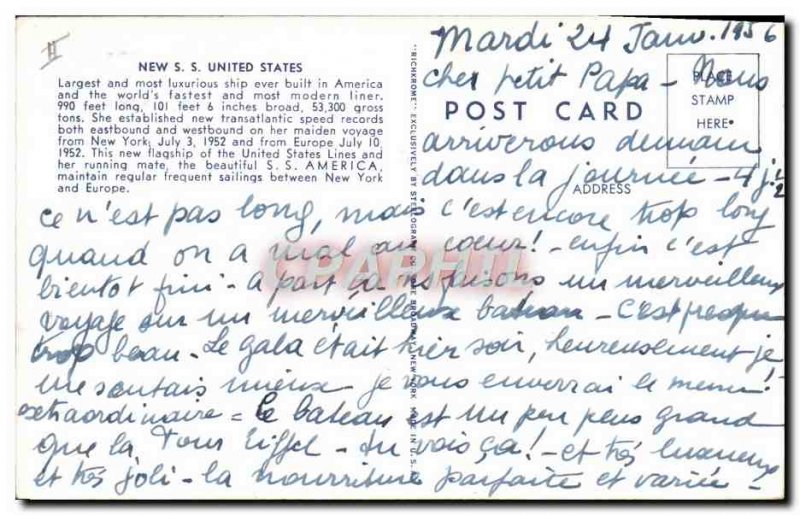 II
NEW S. S. UNITED STATES
Largest and most luxurious ship ever built in America
and the world's fastest and most modern liner.
990 feet long, 101 feet 6 inches broad, 53,300 gross
tons. She established new transatlantic speed records
both eastbound and westbound on her maiden voyage
from New York, July 3, 1952 and from Europe July 10,
1952. This new flagship of the United States Lines and
her running mate, the beautiful S. S. AMERICA,
maintain regular frequent sailings between New York
and Europe.
"RICHKROME" EXCLUSIVELY BY STEELOGRAPH CO. BROADWAY, NEW YORK MADE IN U. S. A.
POST CARD
PLACE
STAMP
HERE
ADDRESS
CPAPHIL
Mardi 24 Janv. 1956
cher petit Papa - Nous
arriverons demain
dans la journée - 4 j. 1/2
ce n'est pas long, mais c'est encore trop long
quand on a mal au coeur! - enfin c'est
bientôt fini - à part ça ns faisons un merveilleux
voyage sur un merveilleux bateau - C'est presque
trop beau - Le gala était hier soir, heureusement je
me sentais mieux - je vous enverrai le menu!
extraordinaire = Le bateau est un peu plus grand
que la Tour Eiffel - tu vois ça! - et très luxueux
et très joli - la nourriture parfaite et variée -